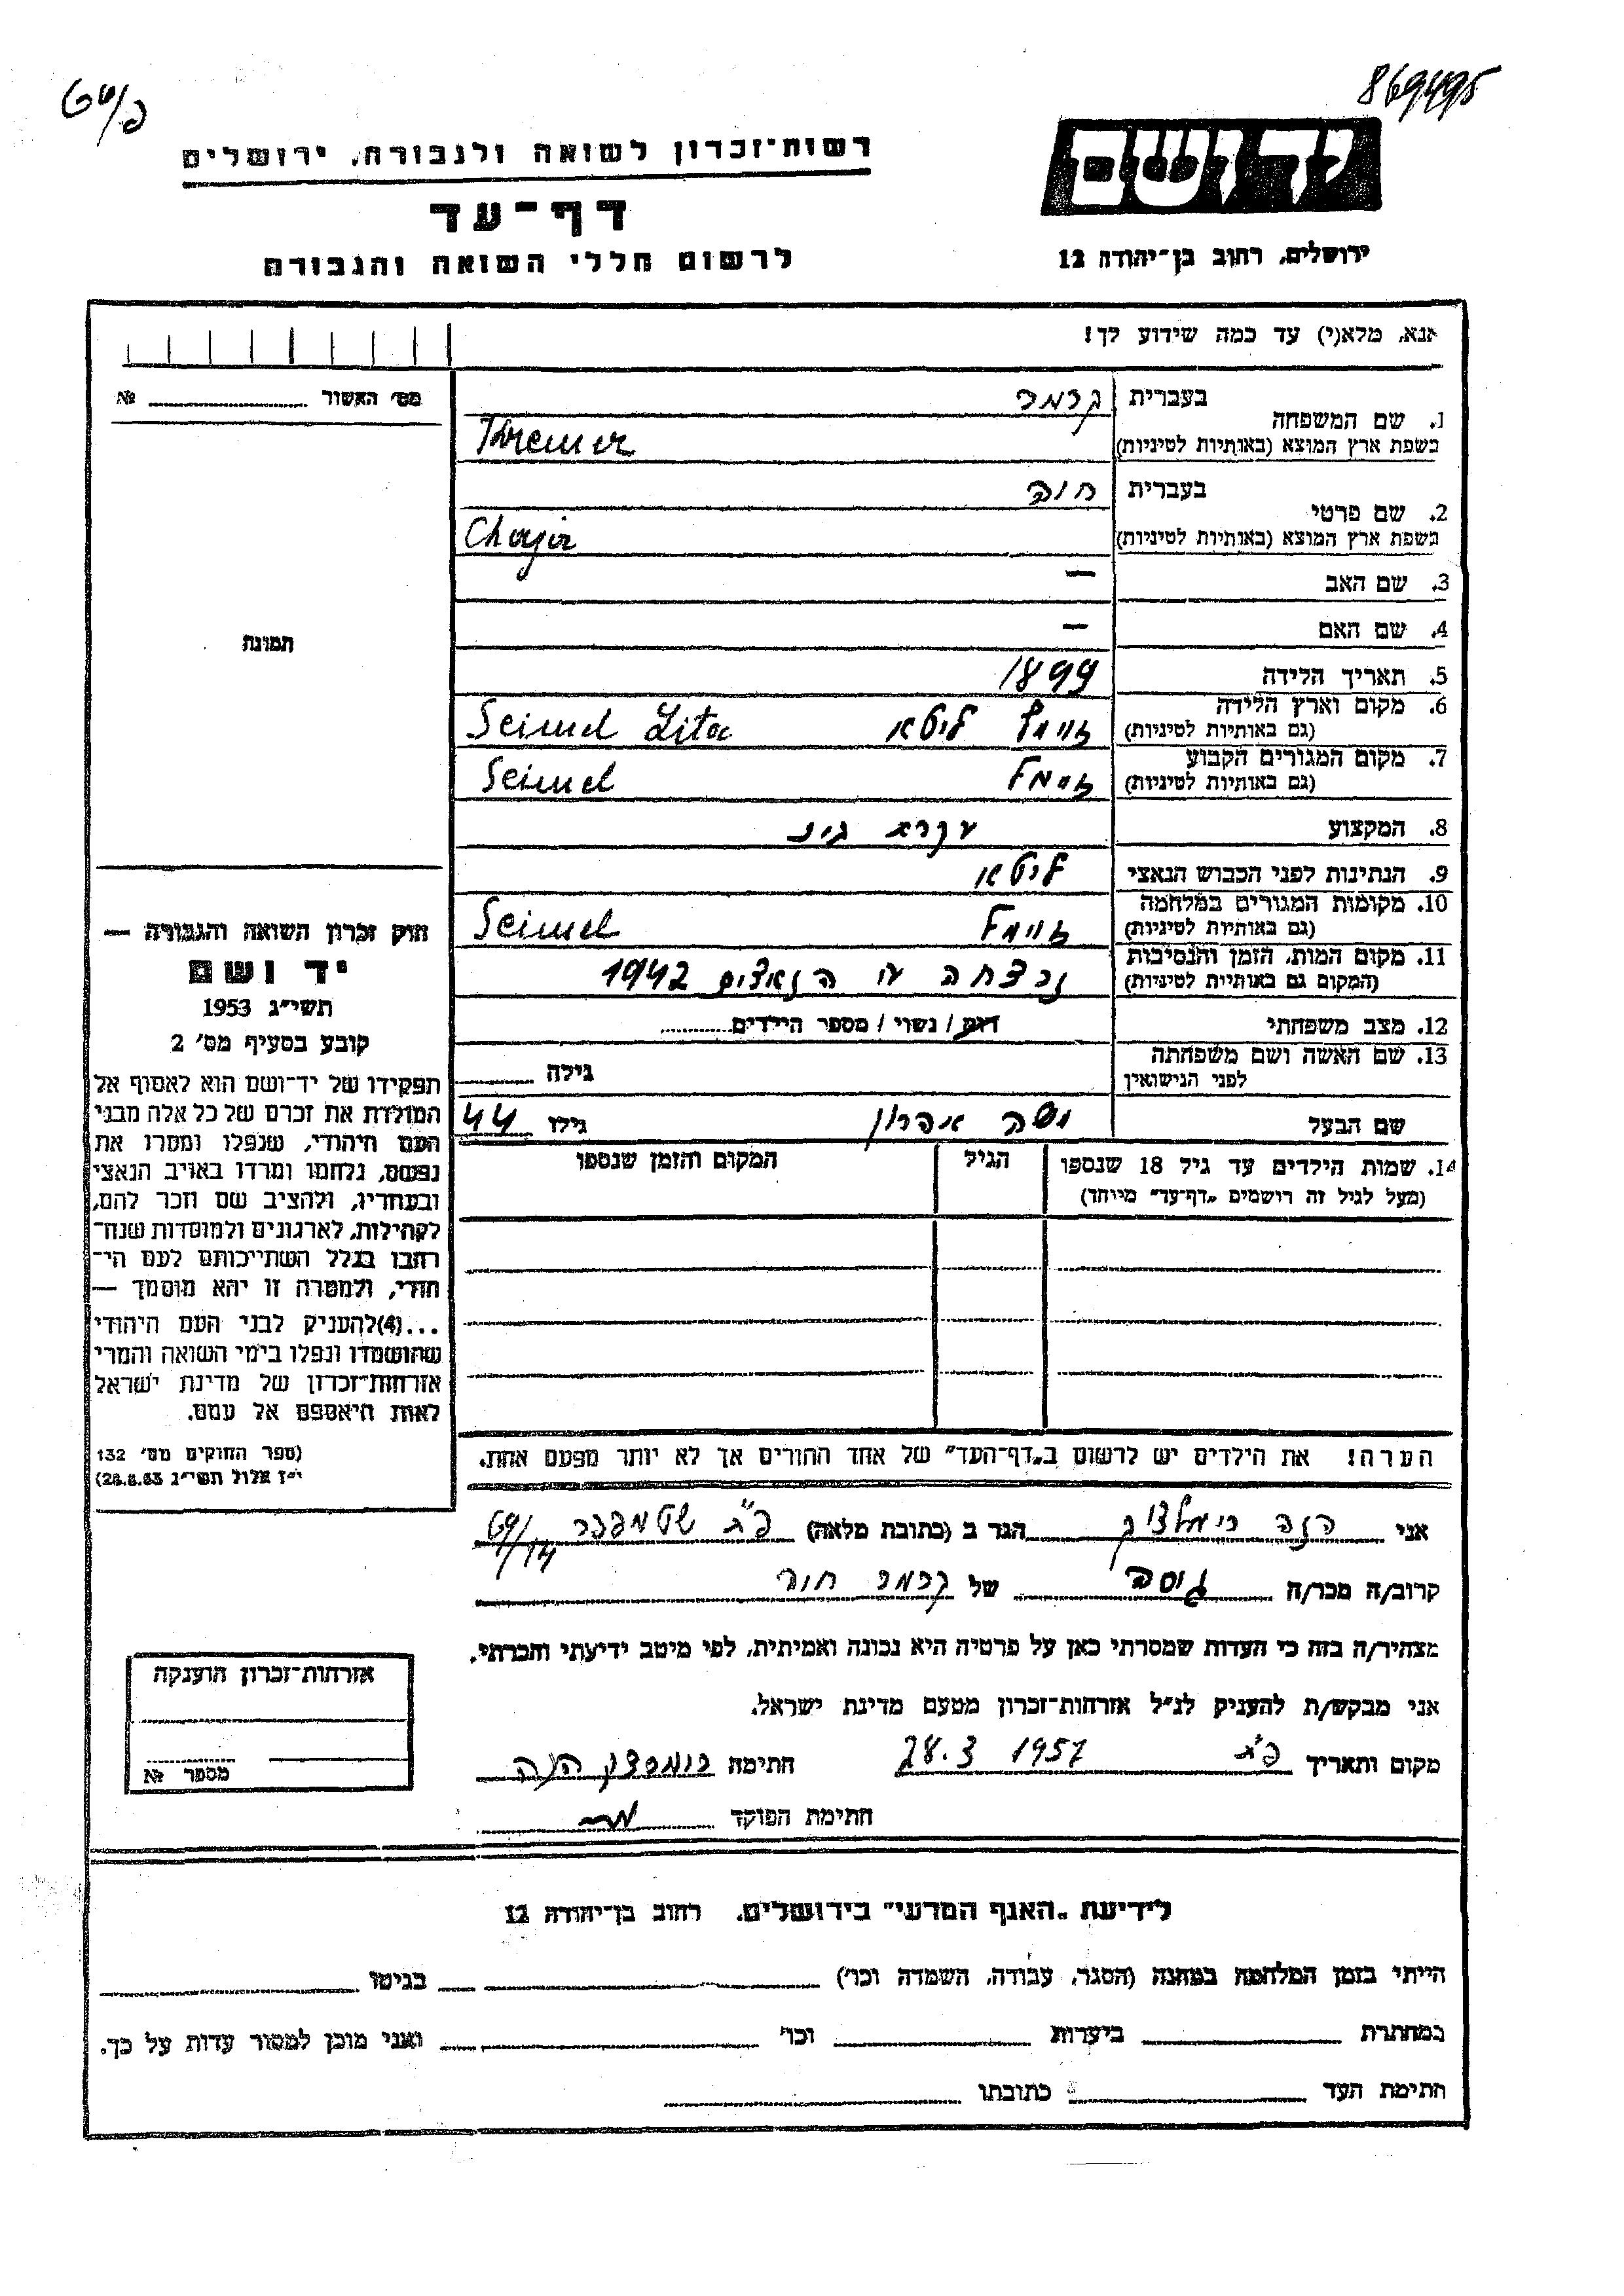 869495
יד ושם
רשות־זכרון לשואה ולגבורה, ירושלים
דף־עד
לרשום חללי השואה והגבורה
ירושלים, רחוב בן־יהודה 12
אנא, מלא(י) עד כמה שידוע לך!
מס׳ האשור № 
1. שם המשפחה בעברית קרמר
בשפת ארץ המוצא (באותיות לטיניות) Kremer
2. שם פרטי בעברית חוה
בשפת ארץ המוצא (באותיות לטיניות) Chaja
3. שם האב —
4. שם האם —
תמונה
5. תאריך הלידה 1899
6. מקום וארץ הלידה (גם באותיות לטיניות) זיימל ליטא Seimel Lita
7. מקום המגורים הקבוע (גם באותיות לטיניות) זיימל Seimel
8. המקצוע עקרת בית
9. הנתינות לפני הכבוש הנאצי ליטא
10. מקומות המגורים במלחמה (גם באותיות לטיניות) זיימל Seimel
11. מקום המות, הזמן והנסיבות (המקום גם באותיות לטיניות) נרצחה ע״י הנאצים 1942
12. מצב משפחתי רווק / נשוי / מספר הילדים
13. שם האשה ושם משפחתה לפני הנישואין גילה
שם הבעל משה אהרון גילו 44
14. שמות הילדים עד גיל 18 שנספו הגיל המקום והזמן שנספו
(מעל לגיל זה רושמים „דף־עד״ מיוחד)
חוק זכרון השואה והגבורה —
יד ושם
תשי״ג 1953
קובע בסעיף מס׳ 2
תפקידו של יד־ושם הוא לאסוף אל
המולדת את זכרם של כל אלה מבני
העם היהודי, שנפלו ומסרו את
נפשם, נלחמו ומרדו באויב הנאצי
ובעוזריו, ולהציב שם וזכר להם,
לקהילות, לארגונים ולמוסדות שנח־
רבו בגלל השתייכותם לעם הי־
הודי, ולמטרה זו יהא מוסמך —
...(4)להעניק לבני העם היהודי
שהושמדו ונפלו בימי השואה והמרי
אזרחות־זכרון של מדינת ישראל
לאות היאספם אל עמם.
(ספר החוקים מס׳ 132
י״ז אלול תשי״ג 28.8.53)
הערה! את הילדים יש לרשום ב„דף־העד״ של אחד ההורים אך לא יותר מפעם אחת.
אני הגר ב (כתובת מלאה) פ״ת 69/14
קרוב/ה מכר/ה גיסה של קרמר חוה
מצהיר/ה בזה כי העדות שמסרתי כאן על פרטיה היא נכונה ואמיתית, לפי מיטב ידיעתי והכרתי.
אני מבקש/ת להעניק לנ״ל אזרחות־זכרון מטעם מדינת ישראל.
מקום ותאריך פ״ת 28.3 1957 חתימה
חתימת הפוקד
אזרחות־זכרון הוענקה
מספר №
לידיעת „האגף המדעי״ בירושלים, רחוב בן־יהודה 12
הייתי בזמן המלחמה במחנה (הסגר, עבודה, השמדה וכו׳) בגיטו
במחתרת ביערות וכו׳ ואני מוכן למסור עדות על כך.
חתימת העד כתובתו